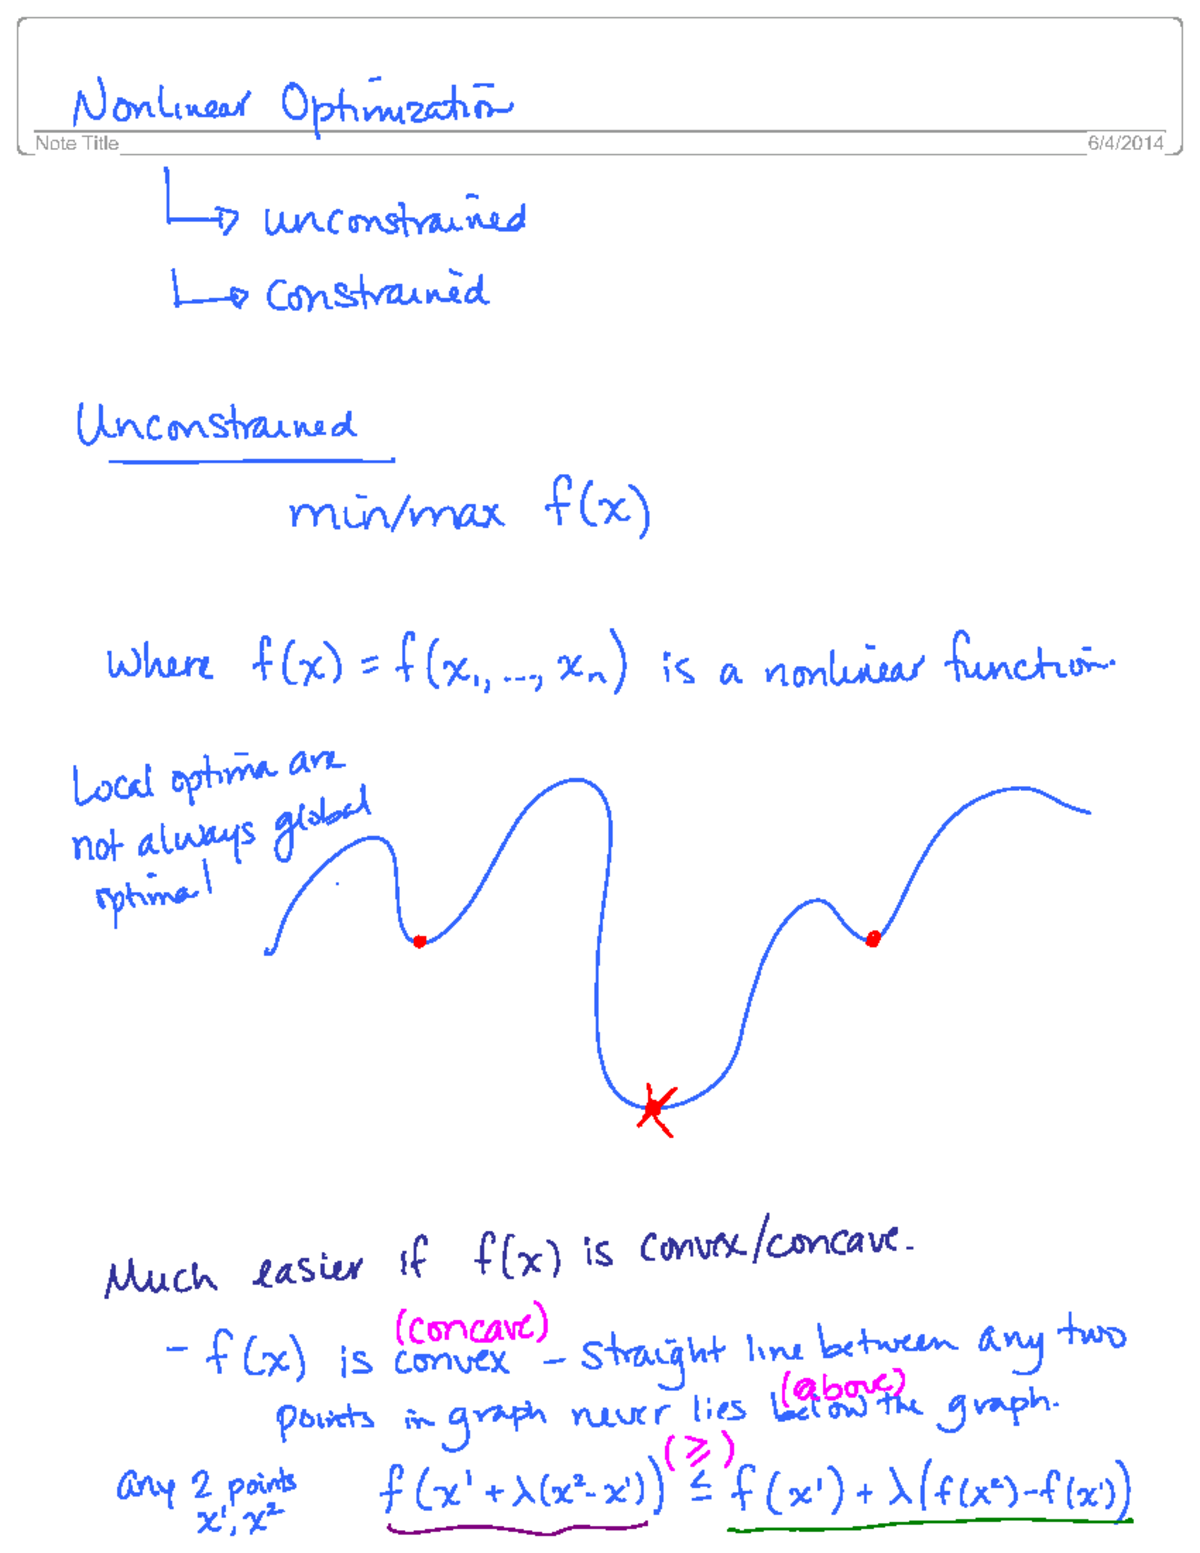 Nonlinear Optimization
Note Title
6/4/2014
unconstrained
constrained
Unconstrained
min/max f(x)
Where f(x) = f(x₁, ..., xₙ) is a nonlinear function.
Local optima are
not always global
optima!
Much easier if f(x) is convex/concave.
(concave)
- f(x) is convex - straight line between any two
(above)
points in graph never lies below the graph.
(≥)
any 2 points f(x¹ + λ(x² - x¹)) ≤ f(x¹) + λ(f(x²) - f(x¹))
x¹, x²